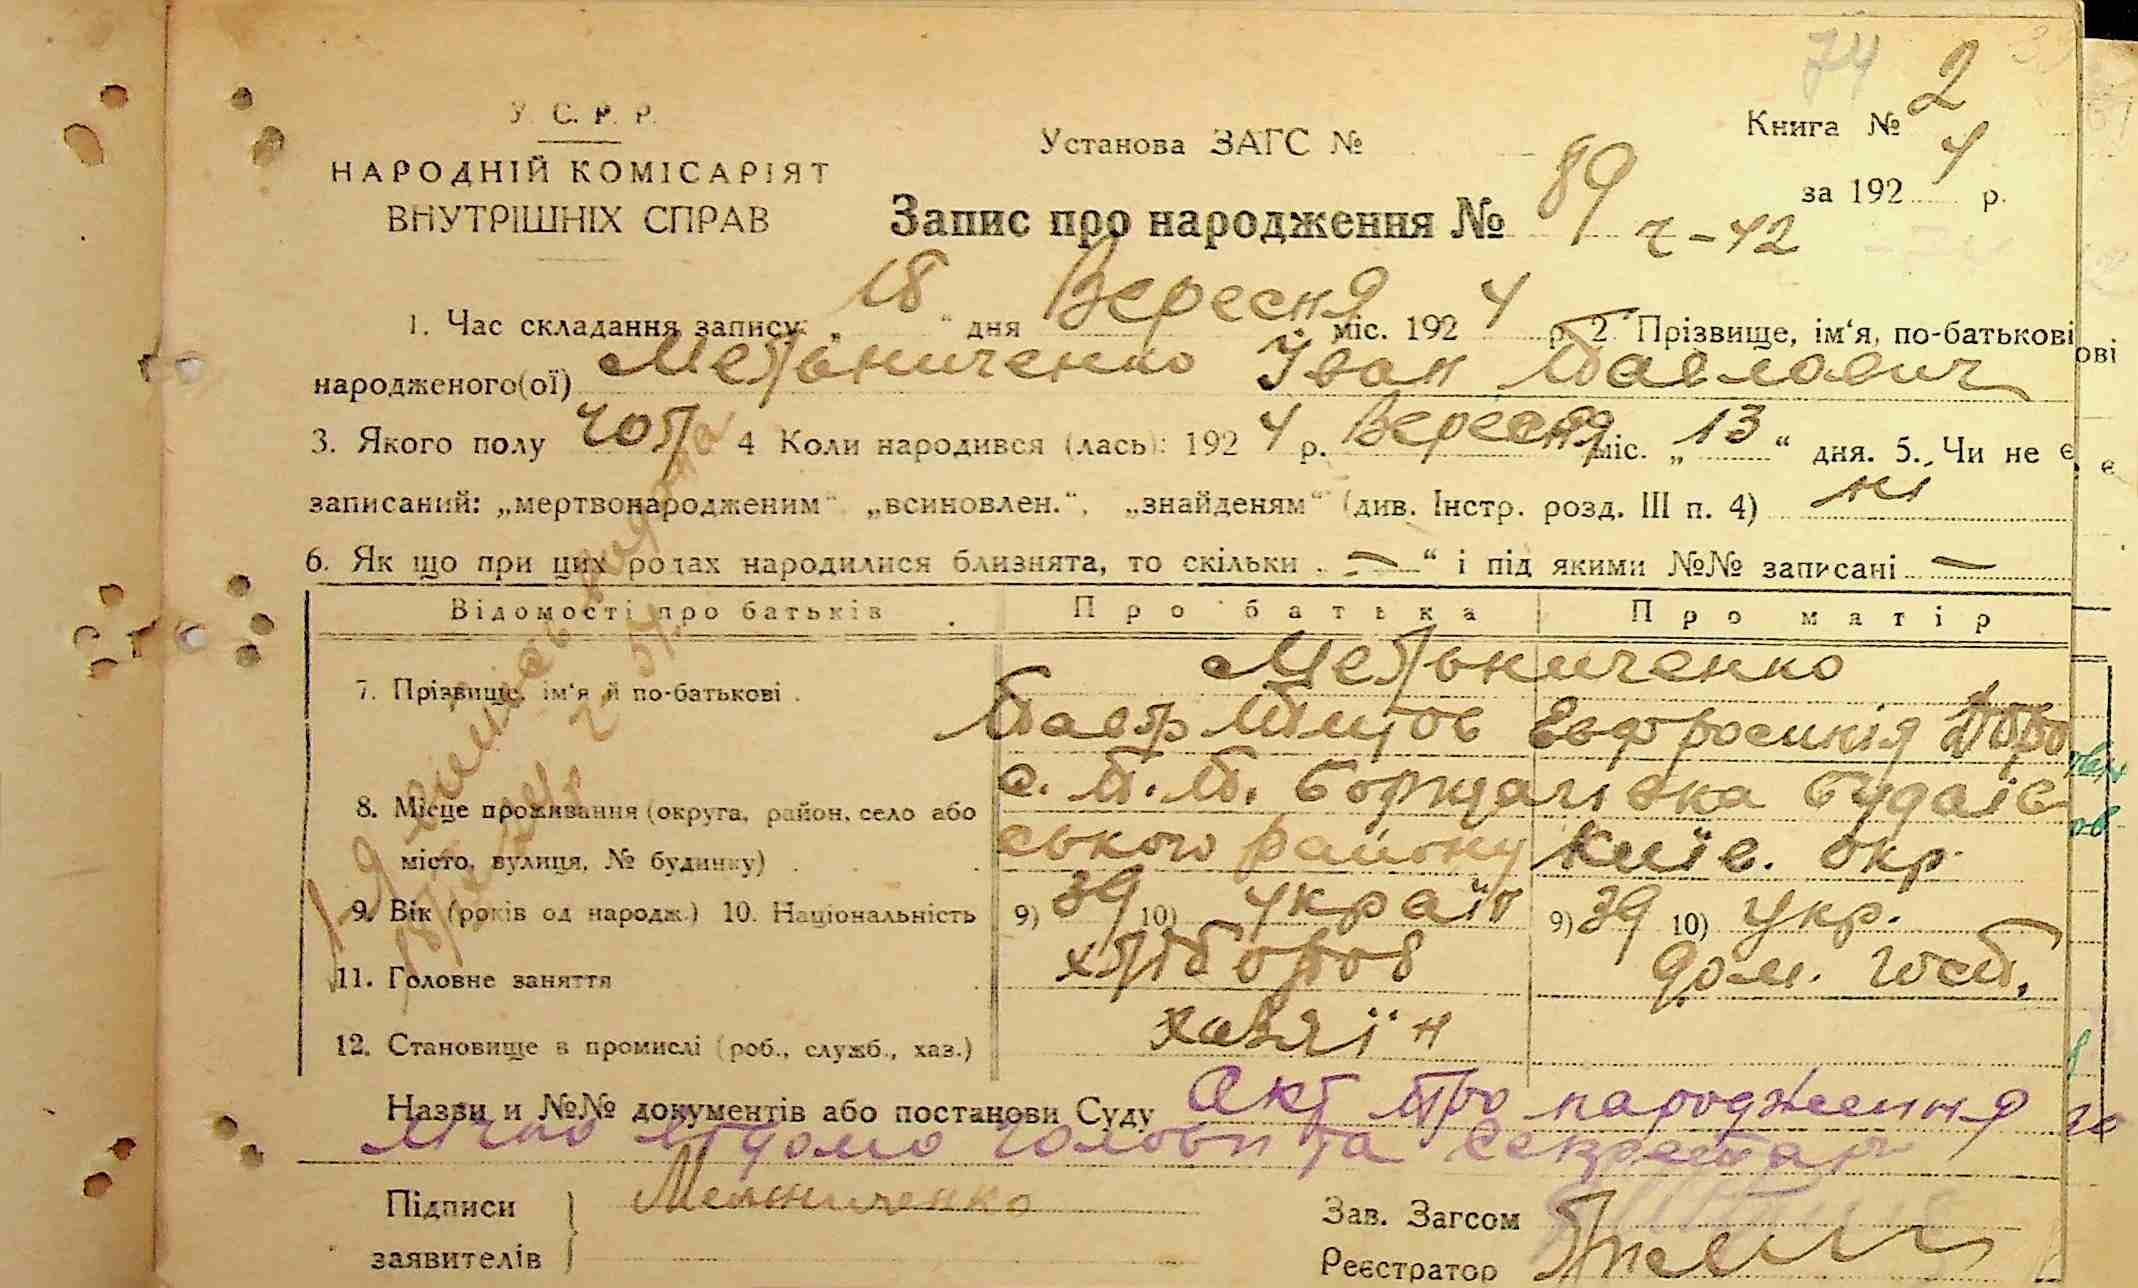 74
У. С. Р. Р.
НАРОДНІЙ КОМІСАРІЯТ
ВНУТРІШНІХ СПРАВ
Установа ЗАГС №
Книга № 2
за 192 4 р.
Запис про народження № 89 ч-42
1. Час складання запису: „ 18 “ дня Вересня міс. 192 4 р. 2. Прізвище, ім‘я, по-батькові
народженого(ої) Мельниченко Іван Павлович
3. Якого полу чол 4 Коли народився (лась): 192 4 р. Вересня міс. „ 13 “ дня. 5. Чи не є
записаний: „мертвонародженим“ „всиновлен.“, „знайденям“ (див. Інстр. розд. III п. 4) ні
6. Як що при цих родах народилися близнята, то скільки „ — “ і під якими №№ записані —
Відомості про батьків Про батька Про матір
7. Прізвище, ім‘я й по-батькові Мельниченко
Павло Євфросинія
8. Місце проживання (округа, район, село або с. П. П. Борщагівка Будаїв-
місто, вулиця, № будинку) ського району Київ. окр.
9. Вік (років од народж.) 10. Національність 9) 39 10) україн 9) 39 10) укр.
11. Головне заняття хлібороб дом. госп.
12. Становище в промислі (роб., служб., хаз.) хазяїн
Назви и №№ документів або постанови Суду Акт про народження
лічно відомо голови та секретар
Підписи заявителів Мельниченко
Зав. Загсом
Реєстратор